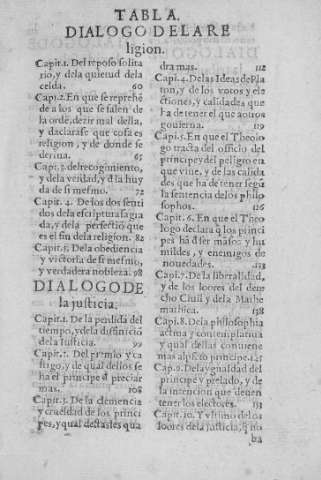 TABLA.
DIALOGO DE LA RE
ligion.
Capit.1. Del reposo solita
rio, y dela quietud dela
celda. 60
Capi.2. En que se reprehẽ
de a los que se salen de
la ordẽ, dezir mal della,
y daclarase que cosa es
religion, y de donde se
deriua. 65
Capi.3. del recogimiento,
y dela verdad, y d̃la huy
da de si mesmo. 72
Capit. 4. De los dos senti
dos dela escriptura sagra
da, y dela perfectiõ que
es el fin dela religion. 82
Capit.5. Dela obediencia
y victoria de si mesmo,
y verdadera nobleza. 98
DIALOGO DE
la justicia.
Capit.1. De la perdida del
tiempo, y dela difinició
dela Iusticia. 99
Capit.2. Del premio y ca
stigo, y de qual dellos se
ha el principe d̃ preciar
mas. 108
Capit.3. Dela clemencia
y crueldad de los princi
pes, y qual destas les qua
dra mas. 112
Capi.4. Delas Ideas de Pla
ton, y de los votos y ele
ctiones, y calidades que
ha de tener el que a otros
gouierna. 119
Capi.5. En que el Theolo
go tracta del officio del
principe y del peligro en
que viue, y de las calida
des que ha de tener segũ
la sentencia de los philo
sophos. 126
Capit.6. En que el Theo
logo declara q̃ los princi
pes hã d̃ ser mãsos y hu
mildes, y enemigos de
nouedades.
Capi.7. De la liberalidad,
y de los loores del dere
cho Ciuil y dela Mathe
mathica. 138
Capi.8. Dela philosophia
actiua y contemplatiua
y qual dellas conuiene
mas alprĩcipe.
Cap.9. Dela ygualdad del
principe y prelado, y de
la intencion que deuen
tener los electores.
Capit.10. Y vltimo de los
loores dela justicia, q̃ no
ba